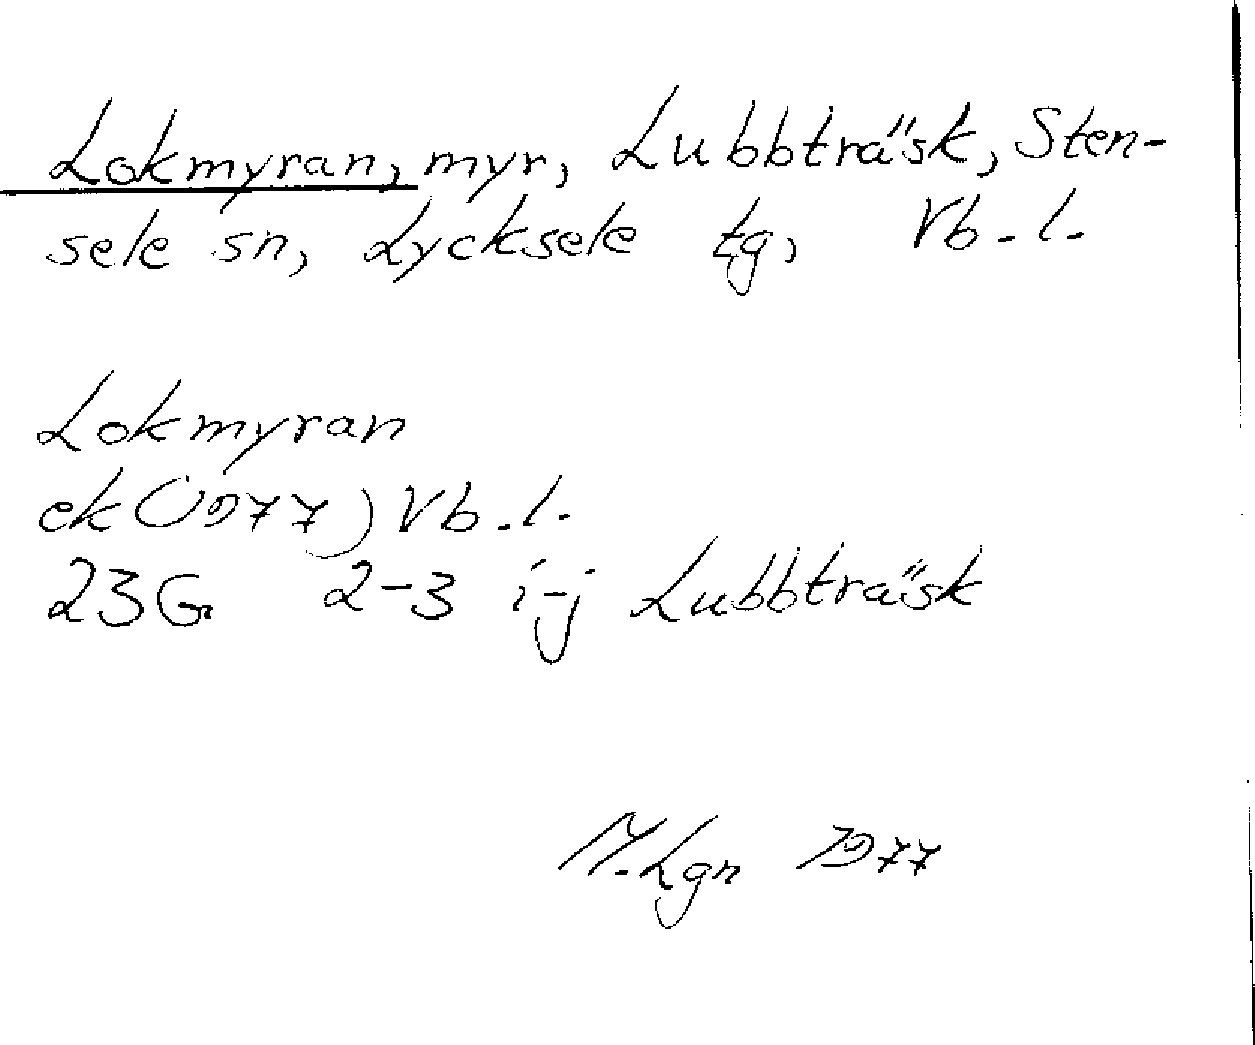 Lokmyran, myr, Lubbträsk, Sten-
sele sn, Lycksele tg, Vb.l.
Lokmyran
ek (1977) Vb.l.
23G 2-3 i-j Lubbträsk
M.Lgn 1977